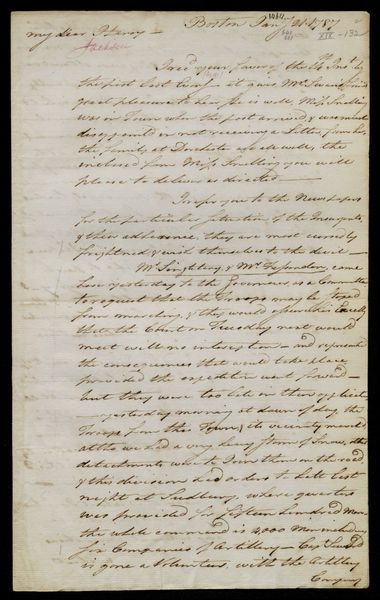 Boston Jany 21. 1787
my dear Harry —
Jackson
XIX - 132
I recd your favor of the 7th Inst by
the first last Eveng it gave Mrs
great pleasure to hear she is well, Miss Snelling
was in Town when the post arrived, & was much
disappointed in not receiving a Letter from her,
the family at Dorchester are all well, the
inclosed from Miss Snelling you will
please to deliver as directed —
I refer you to the News papers
for the particular situation of the Insurgents
& their adherence, they are most cursedly
frightned & wish themselves to the devil —
Mr & Mr Fessenden, came
here yesterday to the Governor as a Committee
to request that the Troops may be stoped
from marching, & they would
that the Court on Tuesday next would
meet with no interruption — and represented
the consequences that would take place
provided the expedition went forward —
but they were too late in their application
— yesterday morning at dawn of day, the
Troops from this Town, & its vicinity marched
altho we had a very heavy Storm of Snow, other
detachments were to Join them on the road,
& this division had orders to halt last
night at Sudbury, where quarters
was provided for fifteen hundred Men
the whole command is 4,000 Men including
six Companies of Artillery —
is gone a Volunteer, with the Artillery
Company